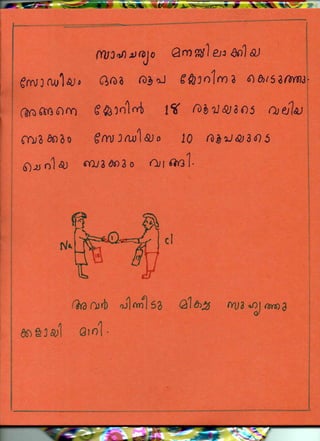 സാഹചര്യം മനസ്സിലാക്കിയ
സോഡിയം ഒരു രൂപ ക്ലോറിനു കൊടുത്തു.
അങ്ങനെ ക്ലോറിൻ 18 രൂപയുടെ വലിയ
ബുക്കും സോഡിയം 10 രൂപയുടെ
ചെറിയ ബുക്കും വാങ്ങി.
Na 1 cl
അവർ പിന്നീട് മികച്ച സുഹൃത്തു
ക്കളായി മാറി.